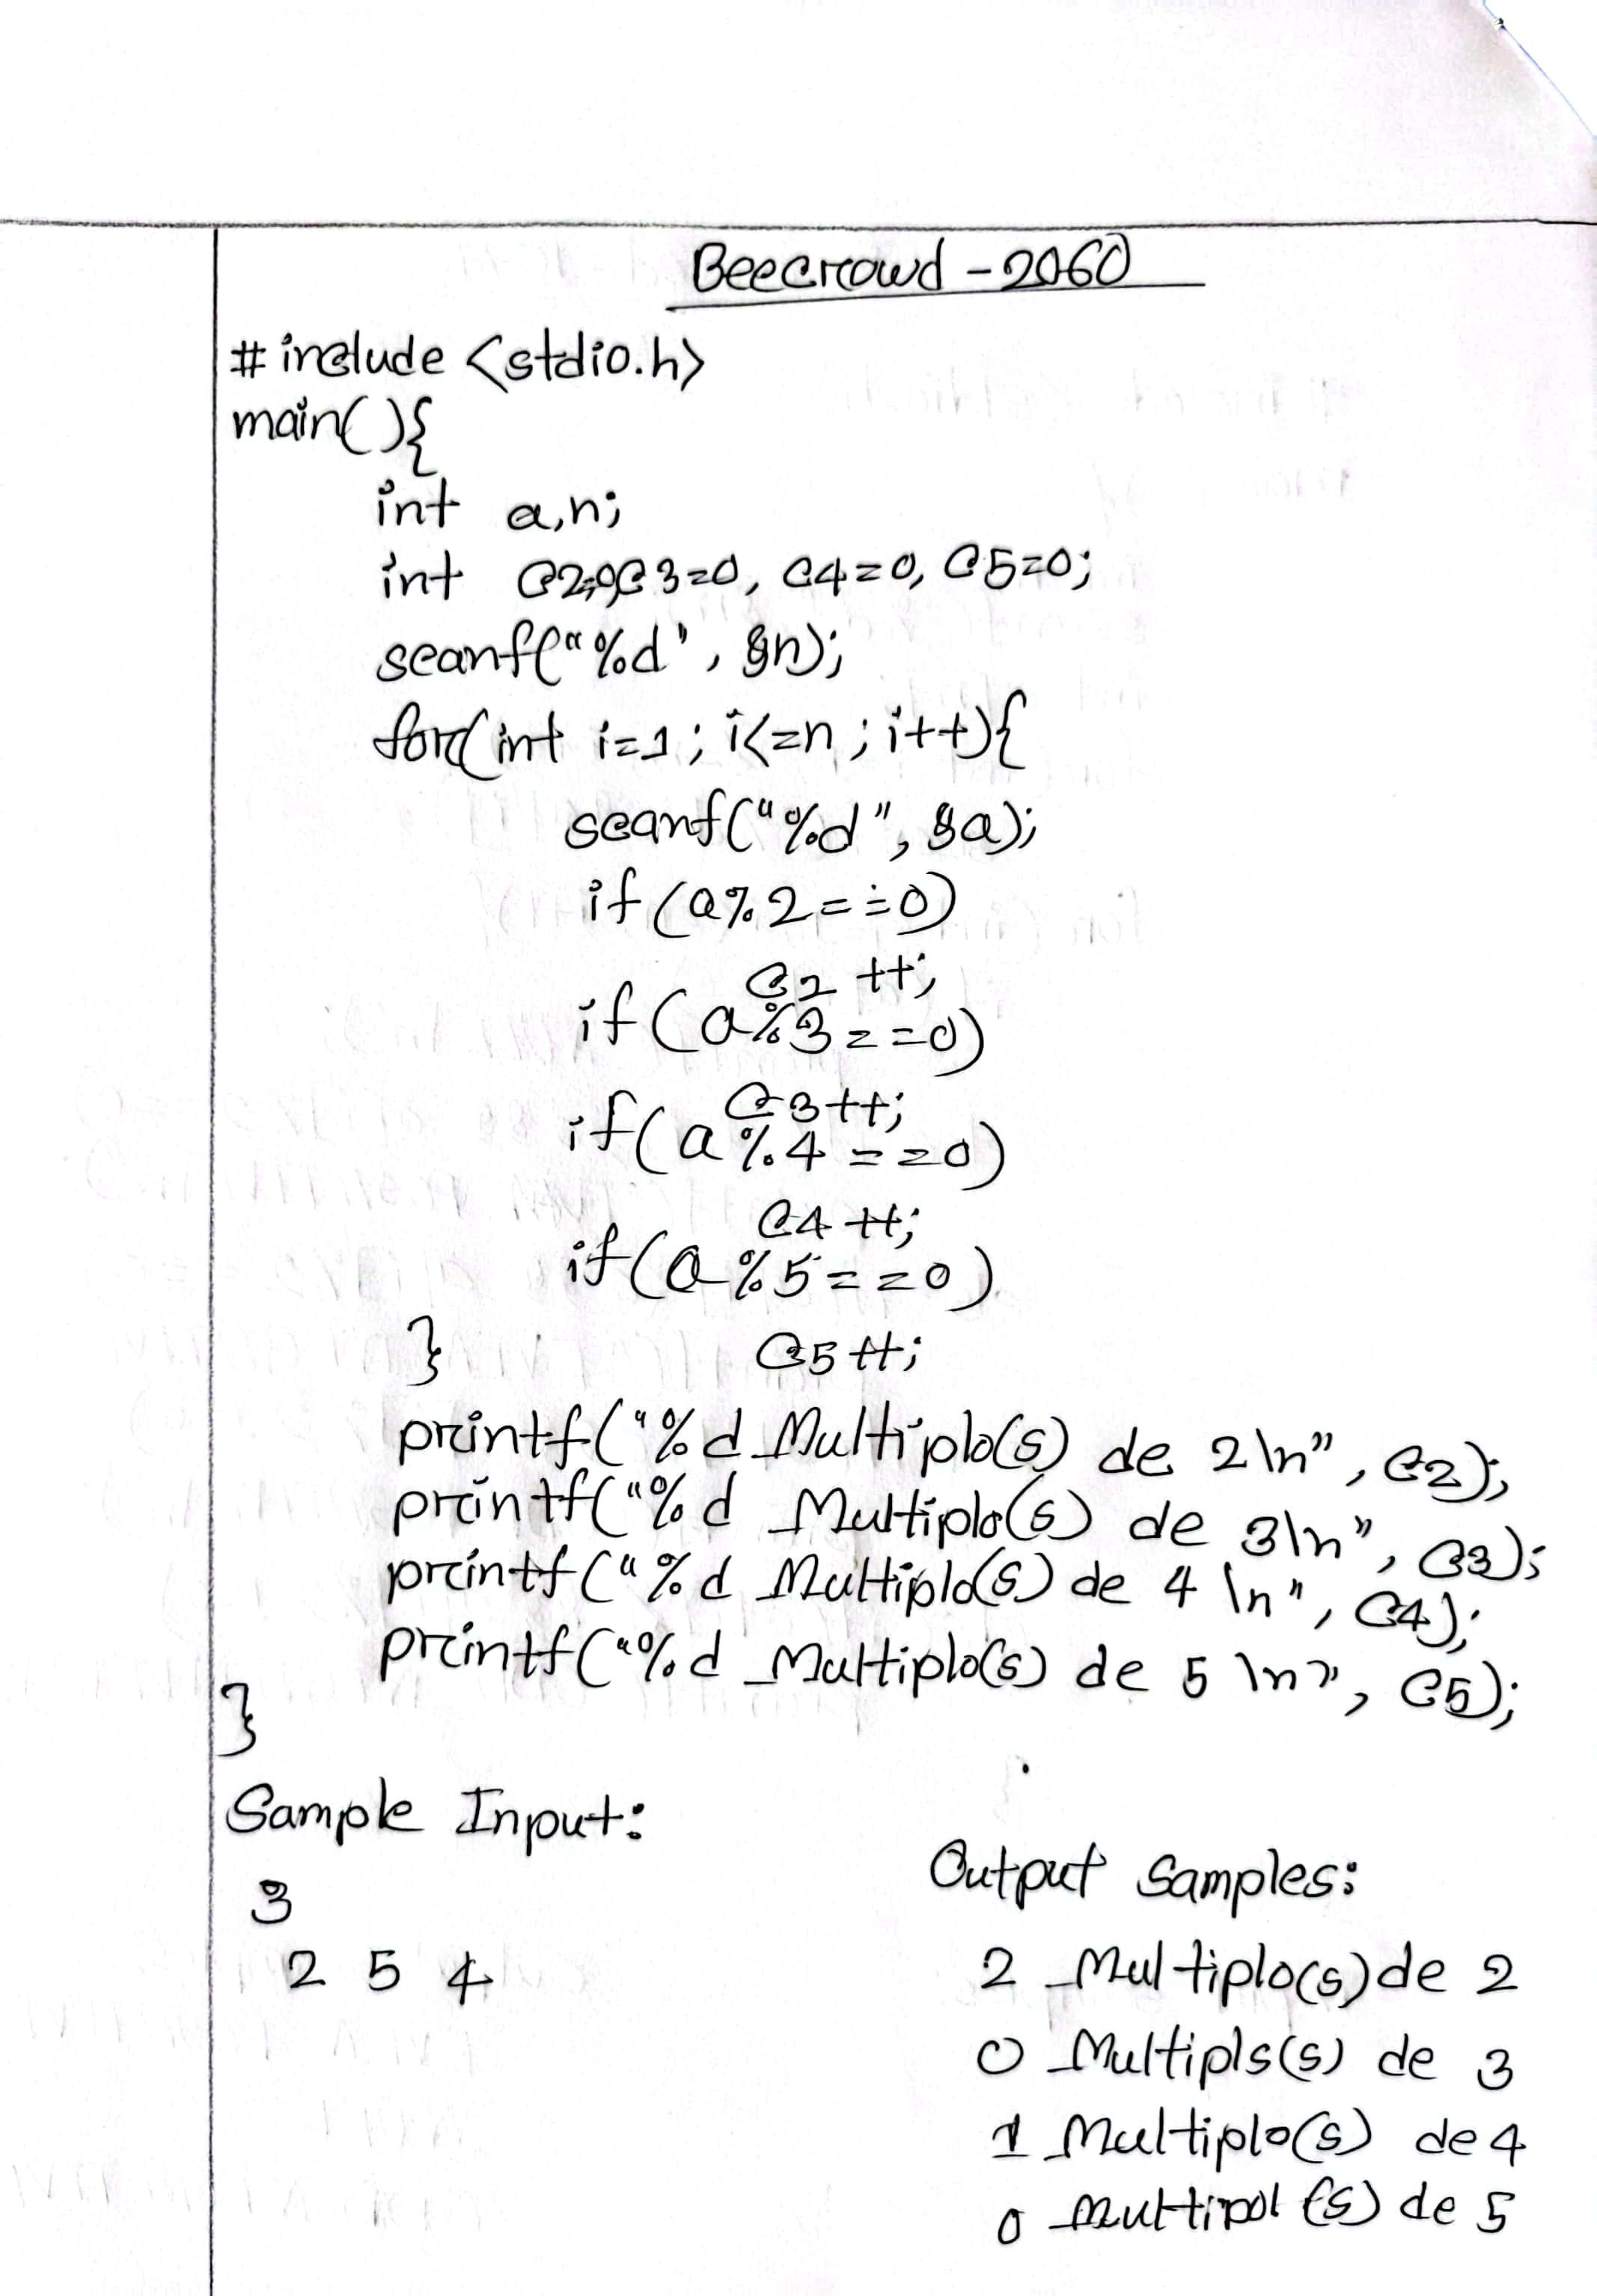 Beecrowd - 2060
#include <stdio.h>
main(){
int a,n;
int C2=0,C3=0, C4=0, C5=0;
scanf("%d", &n);
for(int i=1; i<=n; i++){
scanf("%d", &a);
if(a%2==0)
C2++;
if(a%3==0)
C3++;
if(a%4==0)
C4++;
if(a%5==0)
C5++;
}
printf("%d Multiplo(s) de 2\n", C2);
printf("%d Multiplo(s) de 3\n", C3);
printf("%d Multiplo(s) de 4 \n", C4);
printf("%d Multiplo(s) de 5 \n", C5);
}
Sample Input:
3
2 5 4
Output Samples:
2 Multiplo(s) de 2
0 Multipls(s) de 3
1 Multiplo(s) de 4
0 Multipol (s) de 5